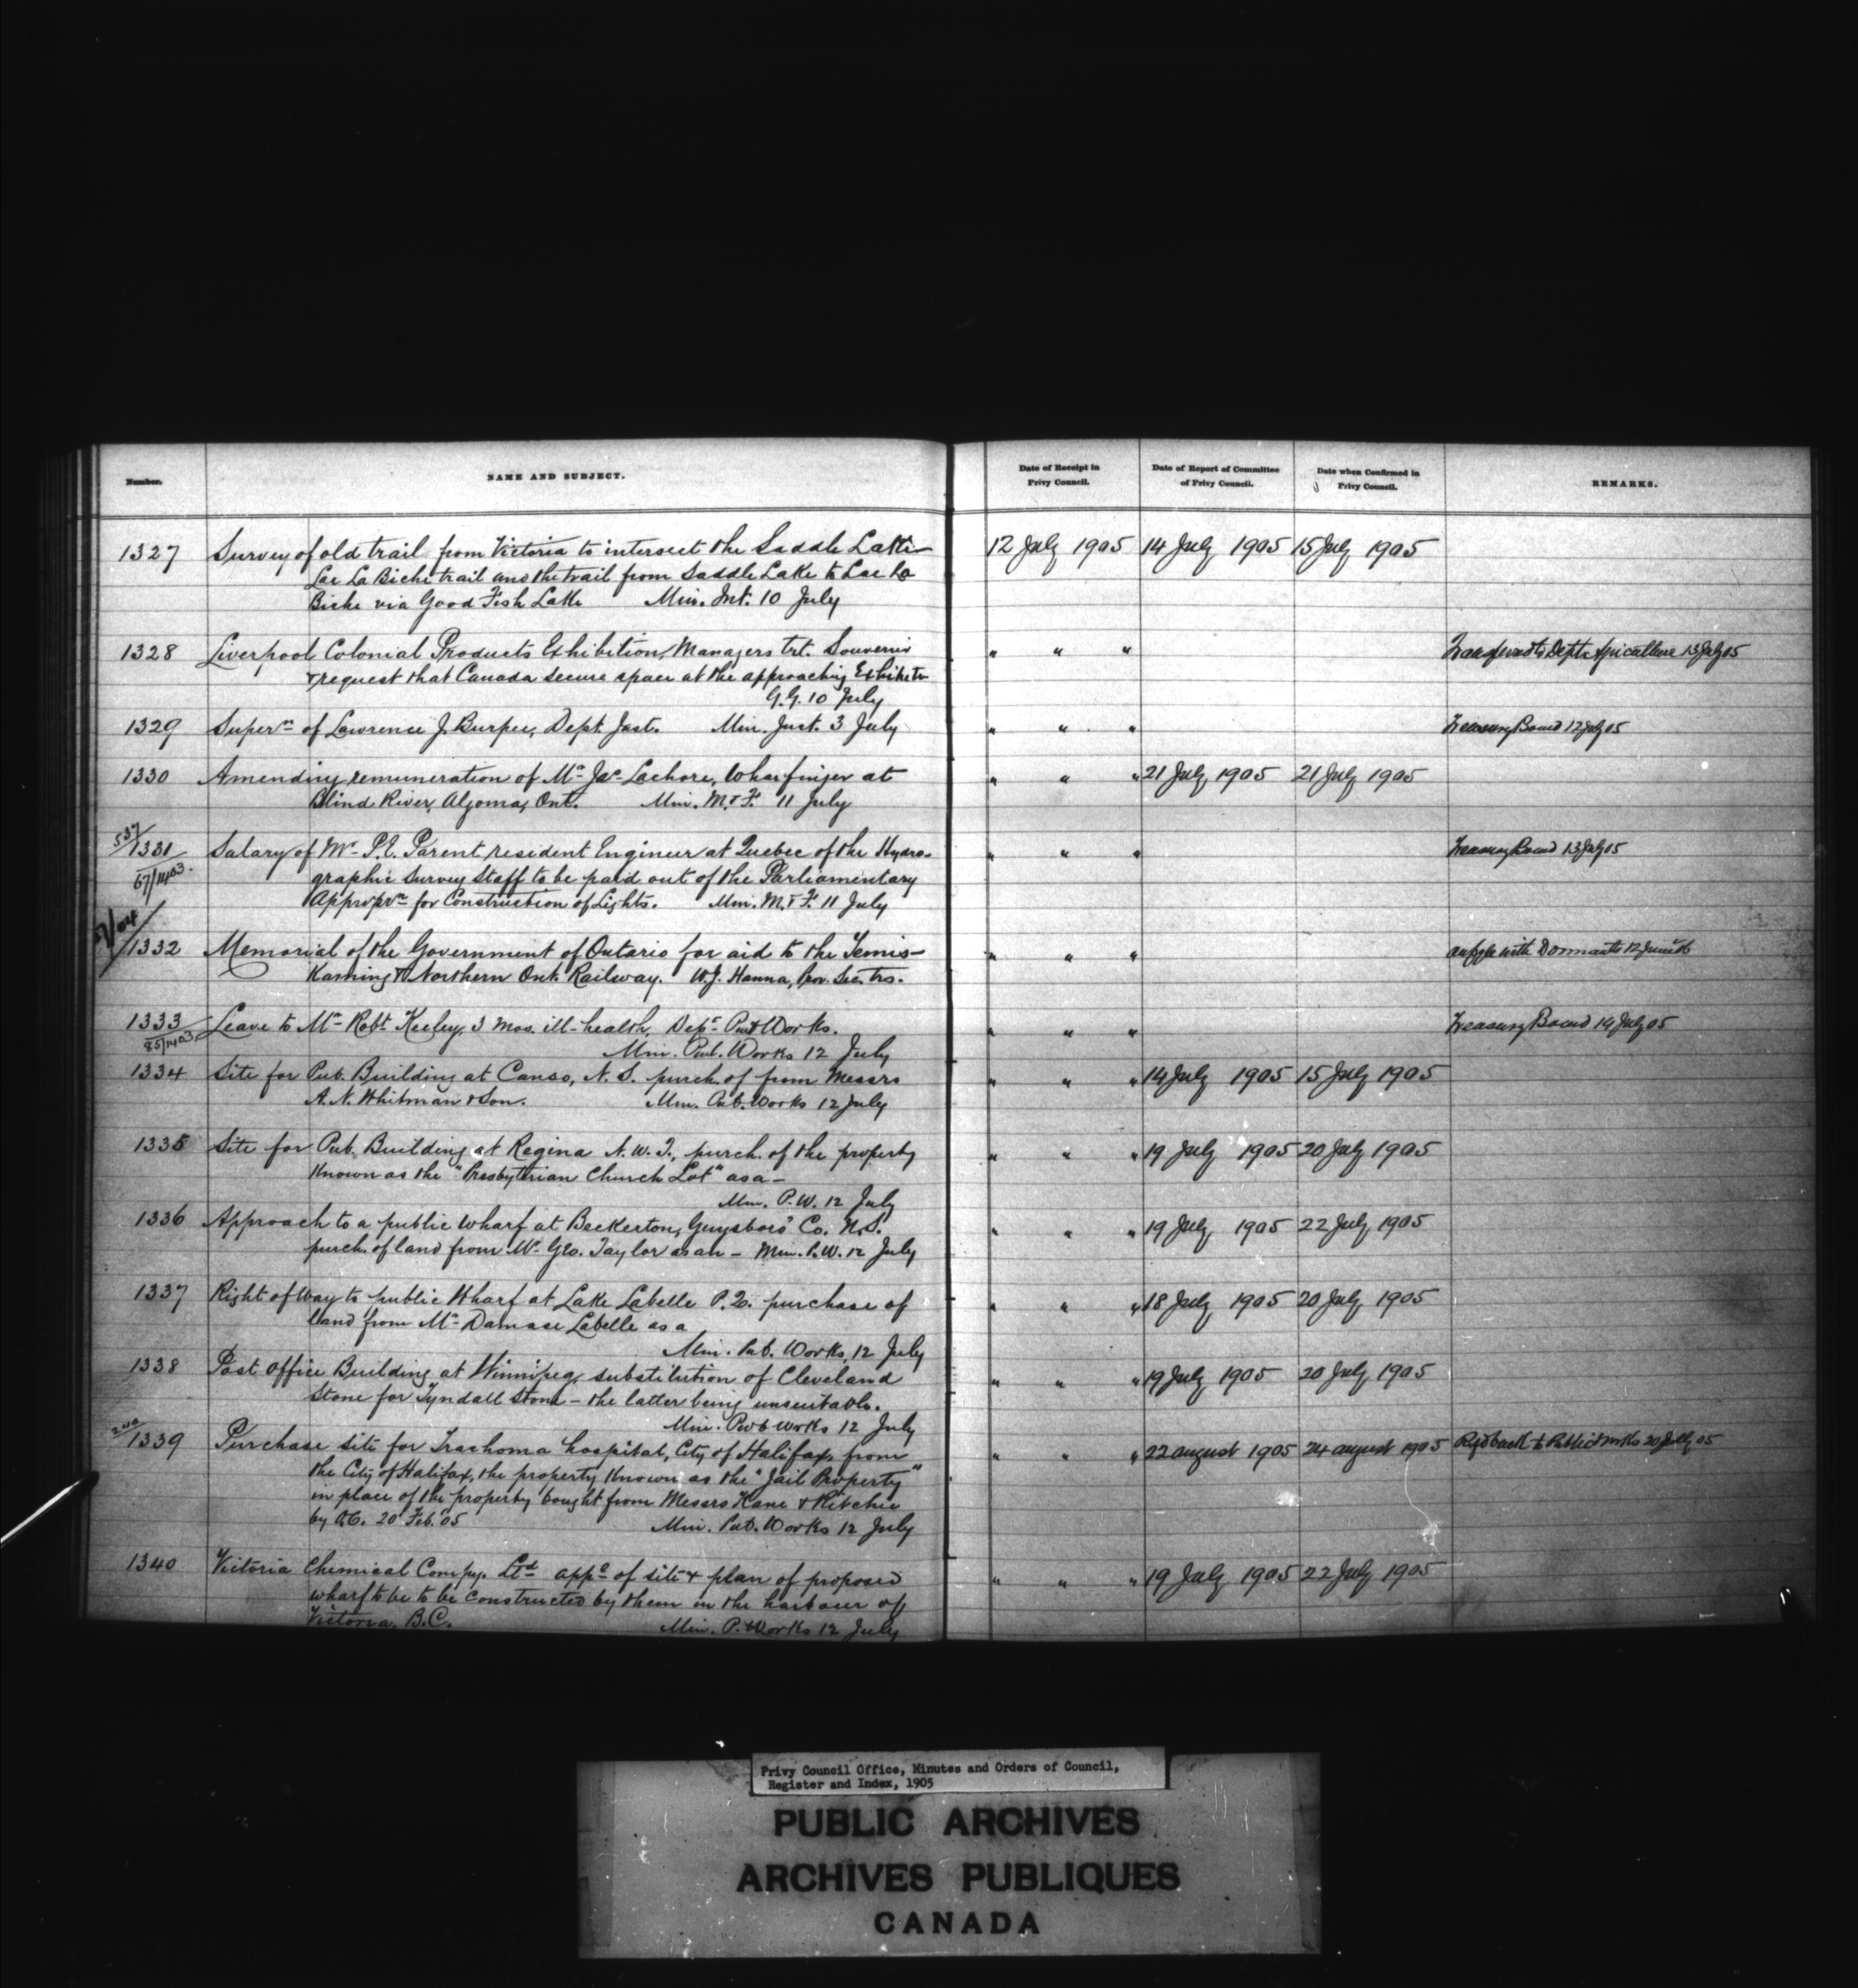 Number.
NAME AND SUBJECT.
Date of Receipt in
Privy Council.
Date of Report of Committee
of Privy Council.
Date when Confirmed in
Privy Council.
REMARKS.
1327 Survey of old trail from Victoria to intersect the Saddle Lake 12 July 1905 14 July 1905 15 July 1905
Lac La Biche trail and the trail from Saddle Lake to Lac La
Biche via Good Fish Lake Min. Int. 10 July
1328 Liverpool Colonial Products Exhibition, Managers trt. Souvenir " " " Transferred to Dept. Agriculture 13 July 05
& request that Canada secure space at the approaching Exhibitn
G.G. 10 July
1329 Supern of Lawrence J. Burpee, Dept. Just. Min. Just. 3 July " " " Treasury Board 12 July 05
1330 Amending remuneration of Mr Jas. Lachore, Wharfinger at " " " 21 July 1905 21 July 1905
Blind River, Algoma, Ont. Min. M. & F. 11 July
537/1331 Salary of Mr P.E. Parent resident Engineer at Quebec of the Hydro- " " " Treasury Board 13 July 05
67/1403. graphic Survey Staff to be paid out of the Parliamentary
Approprn for Construction of Lights. Min. M. & F. 11 July
1332 Memorial of the Government of Ontario for aid to the Temis- " " " with Dormants 12
kaming & Northern Ont. Railway. W.J. Hanna, Prov. Sec. trs.
1333 Leave to Mr Robt Keeley, 3 mos. ill-health, Dept Pub Works. " " " Treasury Board 19 July 05
85/1403 Min. Pub. Works 12 July
1334 Site for Pub. Building at Canso, N.S. purch. of from Messrs " " " 14 July 1905 15 July 1905
A.N. Whitman & Son. Min. Pub. Works 12 July
1335 Site for Pub. Building at Regina N.W.T., purch. of the property " " " 19 July 1905 20 July 1905
known as the "Presbyterian Church Lot" as a -
Min. P.W. 12 July
1336 Approach to a public wharf at Beckerton, Guysboro' Co. N.S. " " " 19 July 1905 22 July 1905
purch. of land from Mr Geo. Taylor as an - Min. P.W. 12 July
1337 Right of way to public Wharf at Lake Labelle P.Q. purchase of " " " 18 July 1905 20 July 1905
land from Mr Damase Labelle as a
Min. Pub. Works, 12 July
1338 Post Office Building at Winnipeg, substitution of Cleveland " " " 19 July 1905 20 July 1905
Stone for Tyndall Stone - the latter being unsuitable.
Min. Pub Works 12 July
1339 Purchase site for Trachoma hospital, City of Halifax, from " " " 22 august 1905 24 august 1905 back to Public Wrks 20 July 05
the City of Halifax, the property known as the "Jail Property"
in place of the property bought from Messrs Kane & Ritchie
by O.C. 20 Feb. '05 Min. Pub. Works 12 July
1340 Victoria Chemical Compy. Ltd appl of site & plan of proposed " " " 19 July 1905 22 July 1905
wharf to be to be constructed by them in the harbour of
Victoria, B.C. Min. P. Works 12 July
Privy Council Office, Minutes and Orders of Council,
Register and Index, 1905
PUBLIC ARCHIVES
ARCHIVES PUBLIQUES
CANADA